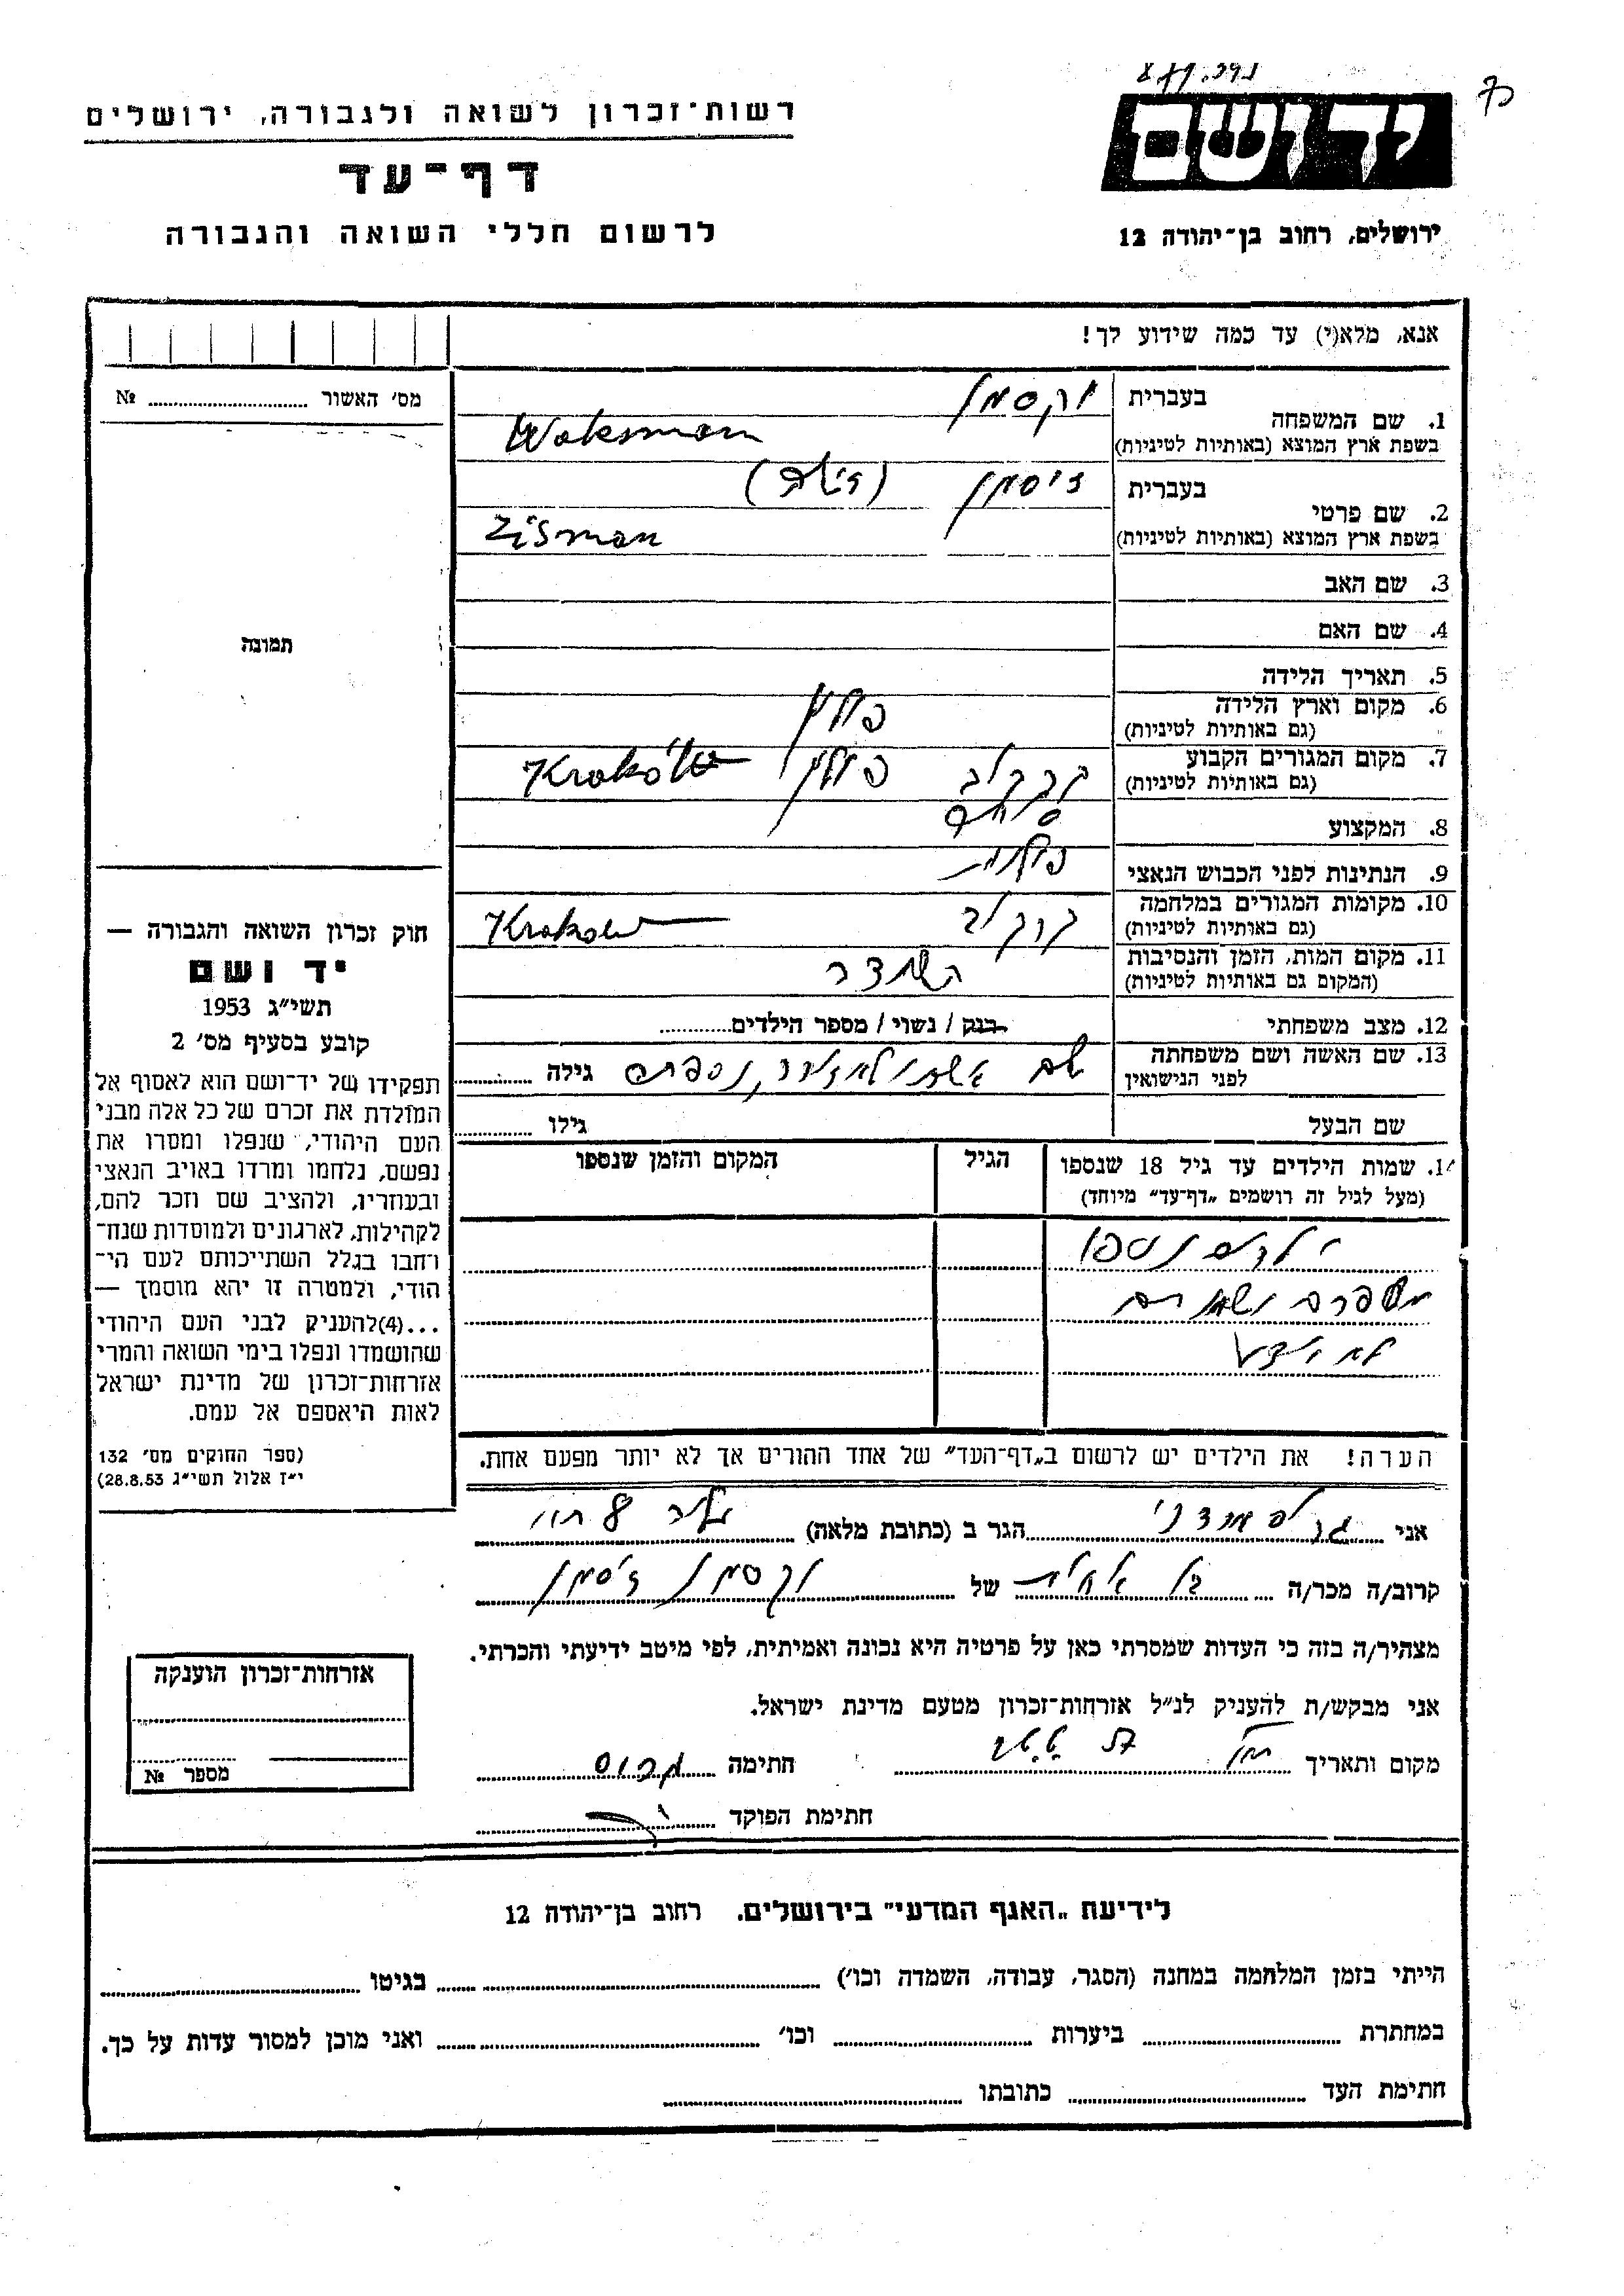 רשות־זכרון לשואה ולגבורה, ירושלים
דף־עד
לרשום חללי השואה והגבורה
יד ושם
ירושלים, רחוב בן־יהודה 12
אנא, מלא(י) עד כמה שידוע לך!
מס׳ האשור № 
1. שם המשפחה בעברית וקסמן
בשפת ארץ המוצא (באותיות לטיניות) Waksman
2. שם פרטי בעברית זיסמן
בשפת ארץ המוצא (באותיות לטיניות) Zisman
3. שם האב
4. שם האם
5. תאריך הלידה
6. מקום וארץ הלידה פולין
(גם באותיות לטיניות)
7. מקום המגורים הקבוע קרקוב פולין Kraków
(גם באותיות לטיניות)
8. המקצוע סוחר
9. הנתינות לפני הכבוש הנאצי פולנית
10. מקומות המגורים במלחמה קרקוב Krakow
(גם באותיות לטיניות)
11. מקום המות, הזמן והנסיבות
(המקום גם באותיות לטיניות)
12. מצב משפחתי רווק / נשוי / מספר הילדים
13. שם האשה ושם משפחתה שם אשתו לא ידוע, נספתה גילה
לפני הנישואין
שם הבעל גילו
14. שמות הילדים עד גיל 18 שנספו הגיל המקום והזמן שנספו
(מעל לגיל זה רושמים „דף־עד״ מיוחד)
ילדים נספו
מספרם ושמותיהם
לא ידוע
הערה! את הילדים יש לרשום ב„דף־העד״ של אחד ההורים אך לא יותר מפעם אחת.
תמונה
חוק זכרון השואה והגבורה —
יד ושם
תשי״ג 1953
קובע בסעיף מס׳ 2
תפקידו של יד־ושם הוא לאסוף אל
המולדת את זכרם של כל אלה מבני
העם היהודי, שנפלו ומסרו את
נפשם, נלחמו ומרדו באויב הנאצי
ובעוזריו, ולהציב שם וזכר להם,
לקהילות, לארגונים ולמוסדות שנח־
רחבו בגלל השתייכותם לעם הי־
הודי, ולמטרה זו יהא מוסמך —
...(4) להעניק לבני העם היהודי
שהושמדו ונפלו בימי השואה והמרי
אזרחות־זכרון של מדינת ישראל
לאות היאספם אל עמם.
(ספר החוקים מס׳ 132
י״ז אלול תשי״ג 28.8.53)
אני הגר ב (כתובת מלאה)
קרוב/ה מכר/ה בן אחות של וקסמן זיסמן
מצהיר/ה בזה כי העדות שמסרתי כאן על פרטיה היא נכונה ואמיתית, לפי מיטב ידיעתי והכרתי.
אני מבקש/ת להעניק לנ״ל אזרחות־זכרון מטעם מדינת ישראל.
מקום ותאריך חתימה
חתימת הפוקד
אזרחות־זכרון הוענקה
מספר №
לידיעת „האגף המדעי״ בירושלים. רחוב בן־יהודה 12
הייתי בזמן המלחמה במחנה (הסגר, עבודה, השמדה וכו׳) בגיטו
במחתרת ביערות וכו׳ ואני מוכן למסור עדות על כך.
חתימת העד כתובתו